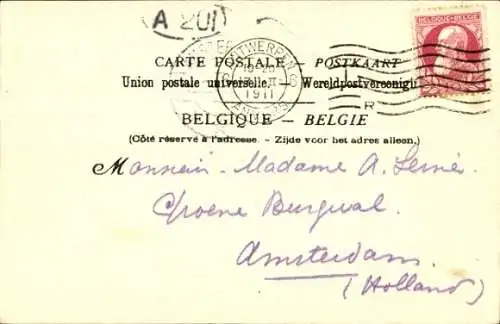 A 201
BELGIQUE-BELGIË
CARTE POSTALE – POSTKAART
ANTWERPEN
Union postale universelle. – Wereldpostvereeniging
1911
ANVERS
R
BELGIQUE – BELGIE
(Côté réservé à l'adresse. – Zijde voor het adres alleen.)
Monsieur - Madame A.
Groene Burgwal.
Amsterdam.
(Holland)